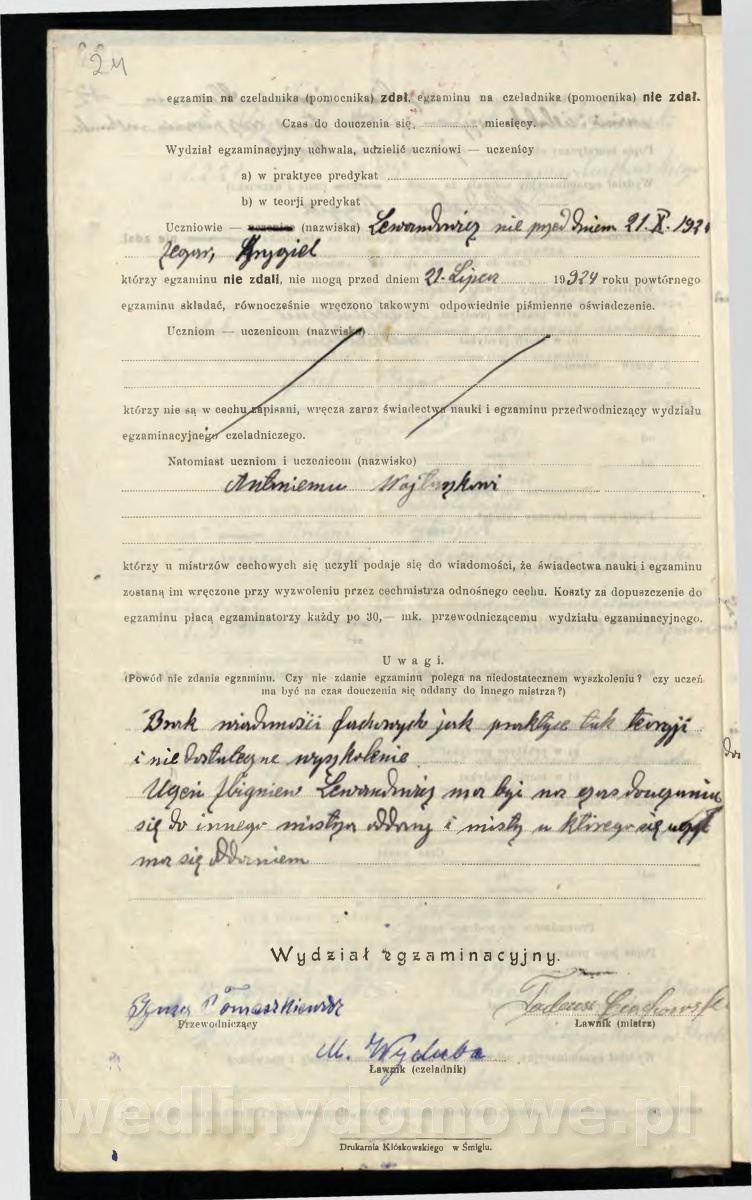 24
egzamin na czeladnika (pomocnika) zdał, egzaminu na czeladnika (pomocnika) nie zdał.
Czas do douczenia się, miesięcy.
Wydział egzaminacyjny uchwala, udzielić uczniowi — uczenicy
a) w praktyce predykat
b) w teorji predykat
Uczniowie — (nazwiska) Lewandowicz nie przed dniem 21. X. 192
Zegar, Krygiel
którzy egzaminu nie zdali, nie mogą przed dniem 21. Lipca 1924 roku powtórnego
egzaminu składać, równocześnie wręczono takowym odpowiednie piśmienne oświadczenie.
Uczniom — uczenicom (nazwiska)
którzy nie są w cechu zapisani, wręcza zaraz świadectwa nauki i egzaminu przedwodniczący wydziału
egzaminacyjnego czeladniczego.
Natomiast uczniom i uczenicom (nazwisko)
Antoniemu
którzy u mistrzów cechowych się uczyli podaje się do wiadomości, że świadectwa nauki i egzaminu
zostaną im wręczone przy wyzwoleniu przez cechmistrza odnośnego cechu. Koszty za dopuszczenie do
egzaminu płacą egzaminatorzy każdy po 30,— mk. przewodniczącemu wydziału egzaminacyjnego.
Uwagi.
(Powód nie zdania egzaminu. Czy nie zdanie egzaminu polega na niedostatecznem wyszkoleniu? czy uczeń
ma być na czas douczenia się oddany do innego mistrza?)
Brak wiadomości fachowych jak praktyce tak teorji
i niedostateczne wyszkolenie
Uczeń Zbigniew Lewandowicz ma być na czas douczania
się do innego mistrza oddany i mistrz u którego się uczył
ma się oddaniem
Wydział egzaminacyjny.
Tomaszkiewicz
Tadeusz
Przewodniczący
Ławnik (mistrz)
M. Wyduba
Ławnik (czeladnik)
wedlinydomowe.pl
Drukarnia Kłóskowskiego w Śmiglu.